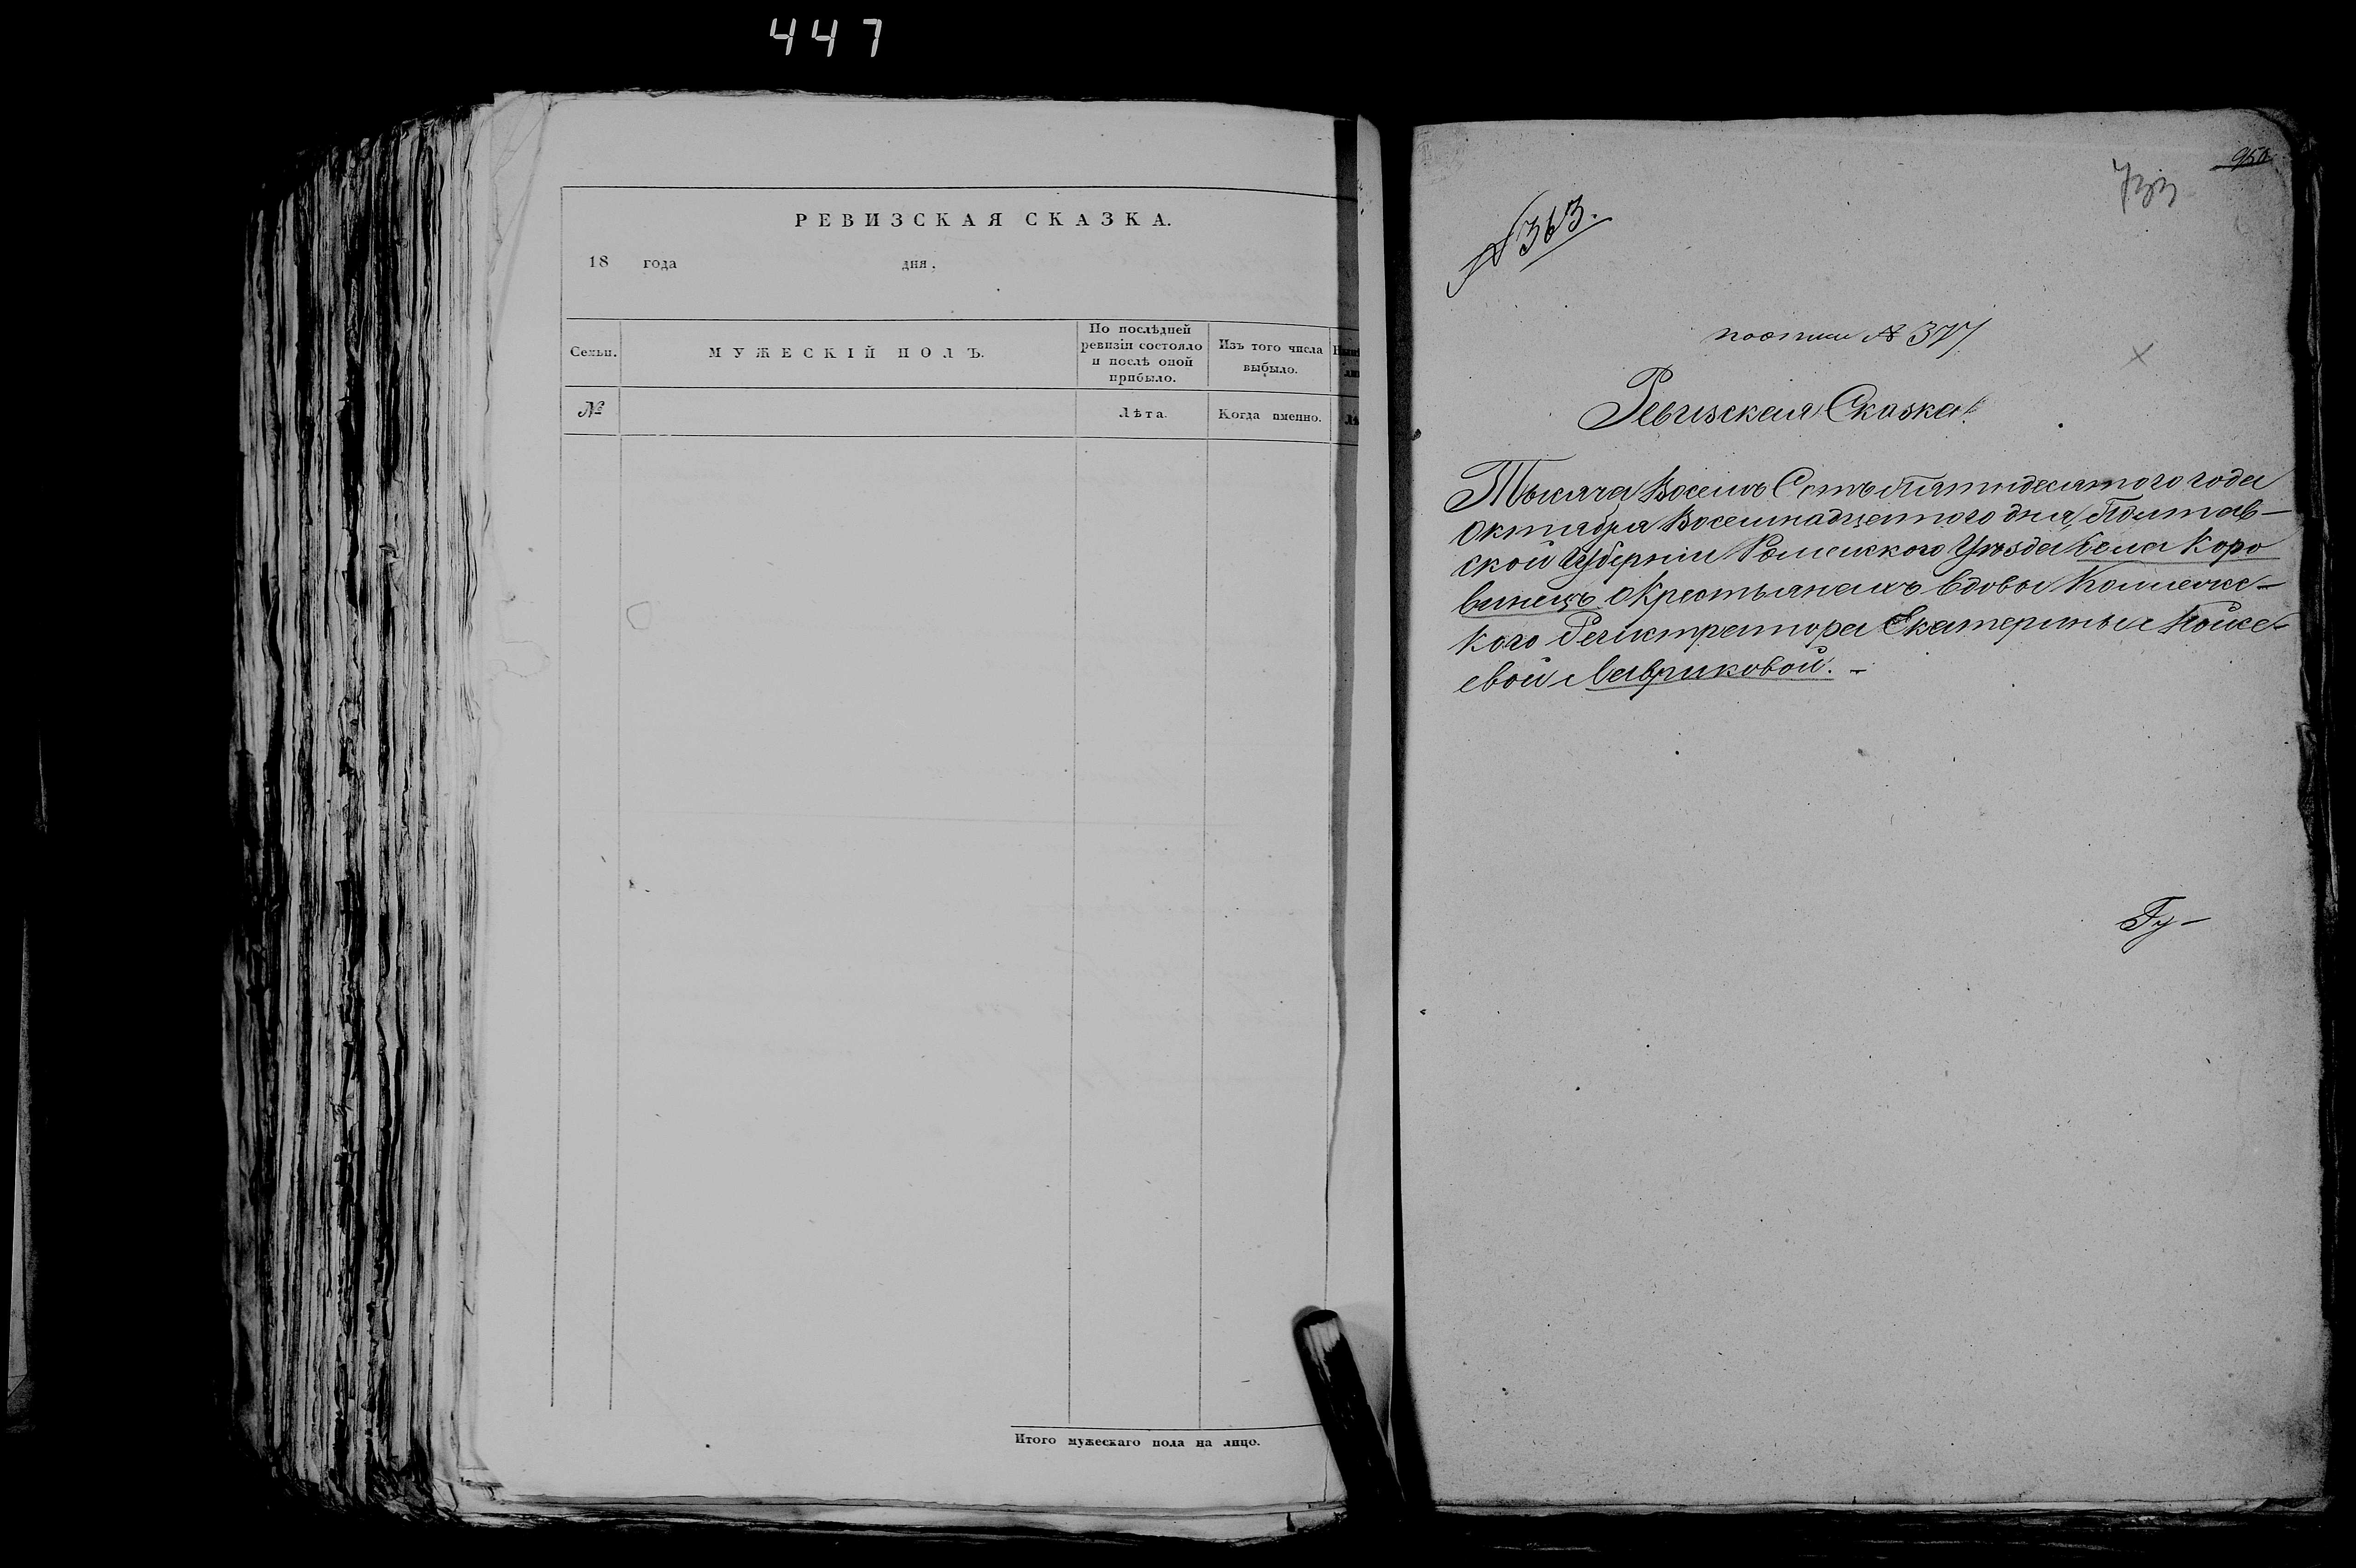 447
РЕВИЗСКАЯ СКАЗКА.
18 года дня,
Семьи.
МУЖЕСКІЙ ПОЛЪ.
По послѣдней
ревизіи состояло
и послѣ оной
прибыло.
Изъ того числа
выбыло.
№
Лѣта.
Когда именно.
Итого мужескаго пола на лицо.
950
733
№ 363.
№ 377
Ревизская Сказка
Тысяча Восемь Сотъ Пятидесятого года
Октября Восемнадцатого дня, Полтав-
ской Губерніи Роменского Уезда Села Коро
винецъ о Крестьянахъ вдовы Коллежс-
кого Регистратора Екатерины
евой Лавриковой. -
Гу-